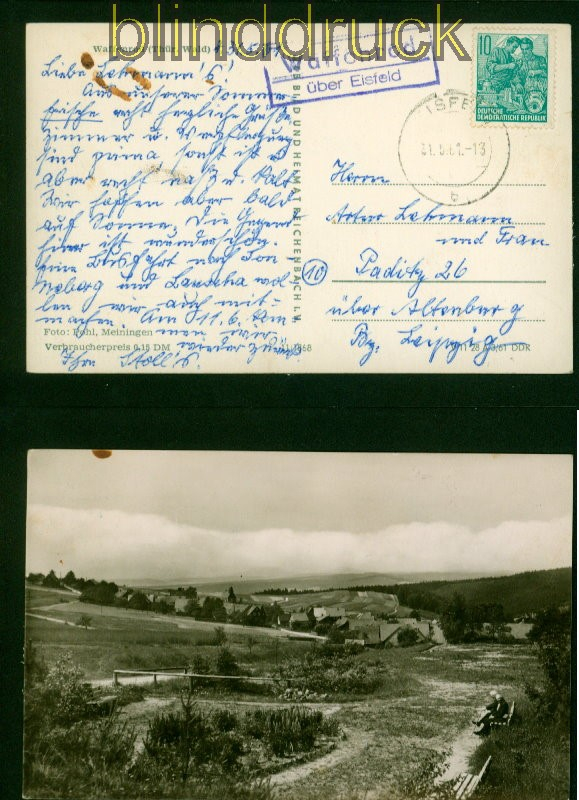 blinddruck
Waffenrod (Thür. Wald)
Waffenrod
über Eisfeld
10
DEUTSCHE
DEMOKRATISCHE REPUBLIK
31.5.61.-13
b
Liebe Lehmann's!
Aus unserer Sommer-
frische recht herzliche Grüße
Zimmer u. Verpflegung
sind prima sonst ist es
aber recht naß u. kalt
Wir hoffen aber bald
auf Sonne, die Gegend
hier ist wunderschön.
Eine Busfahrt nach Son-
neberg und Lauscha wol-
len wir auch mit-
machen. Am 11.6. kom-
men wir
wieder zurück
Ihre Stoll's.
Foto: Pohl, Meiningen
Verbraucherpreis 0,15 DM
BILD UND HEIMAT REICHENBACH I. V.
Herrn
Artur Lehmann
und Frau
10
Paditz 26
über Altenburg
Bz. Leipzig
DDR